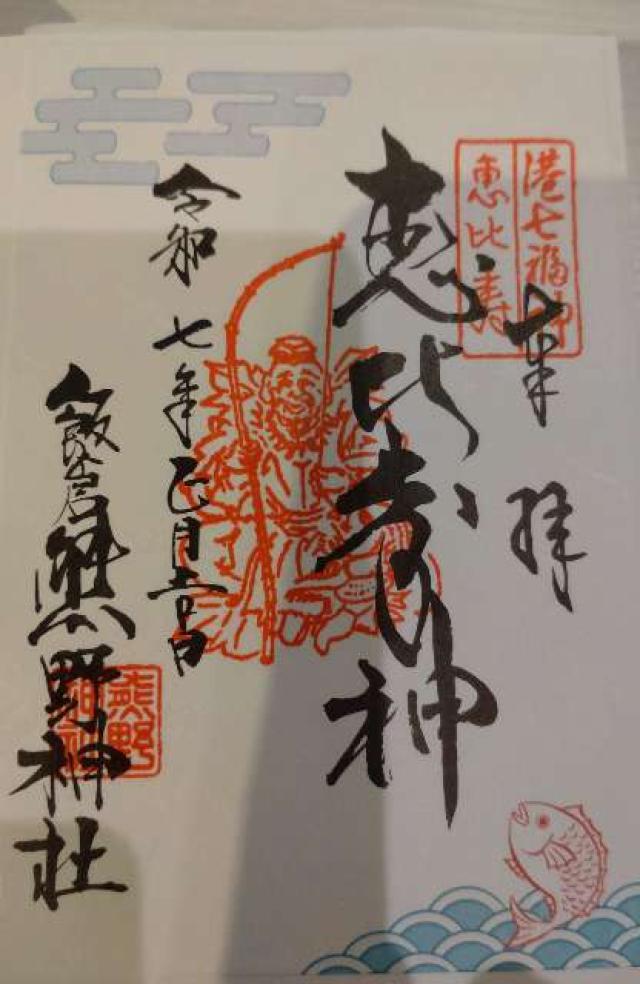 港七福神
恵比寿
奉拝
恵比寿神
令和七年正月吉日
飯倉熊野神社
熊野
神社